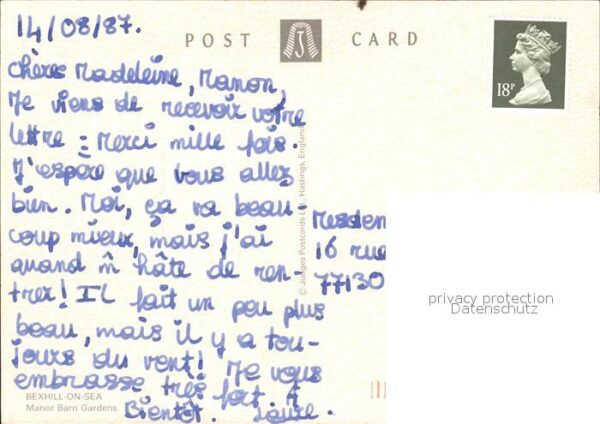 14/08/87.
POST CARD
18P
Chères Madeleine, Manon,
Je viens de recevoir votre
lettre : Merci mille fois.
J'espère que vous allez
bien. Moi, ça va beau-
coup mieux, mais j'ai
quand m̂ hâte de ren-
trer! IL fait un peu plus
beau, mais il y a tou-
jours du vent! Je vous
embrasse très fort. A
Bientôt. Laure.
16 rue
77130
© Judges Postcards Ltd., Hastings, England
BEXHILL-ON-SEA
Manor Barn Gardens
privacy protection
Datenschutz